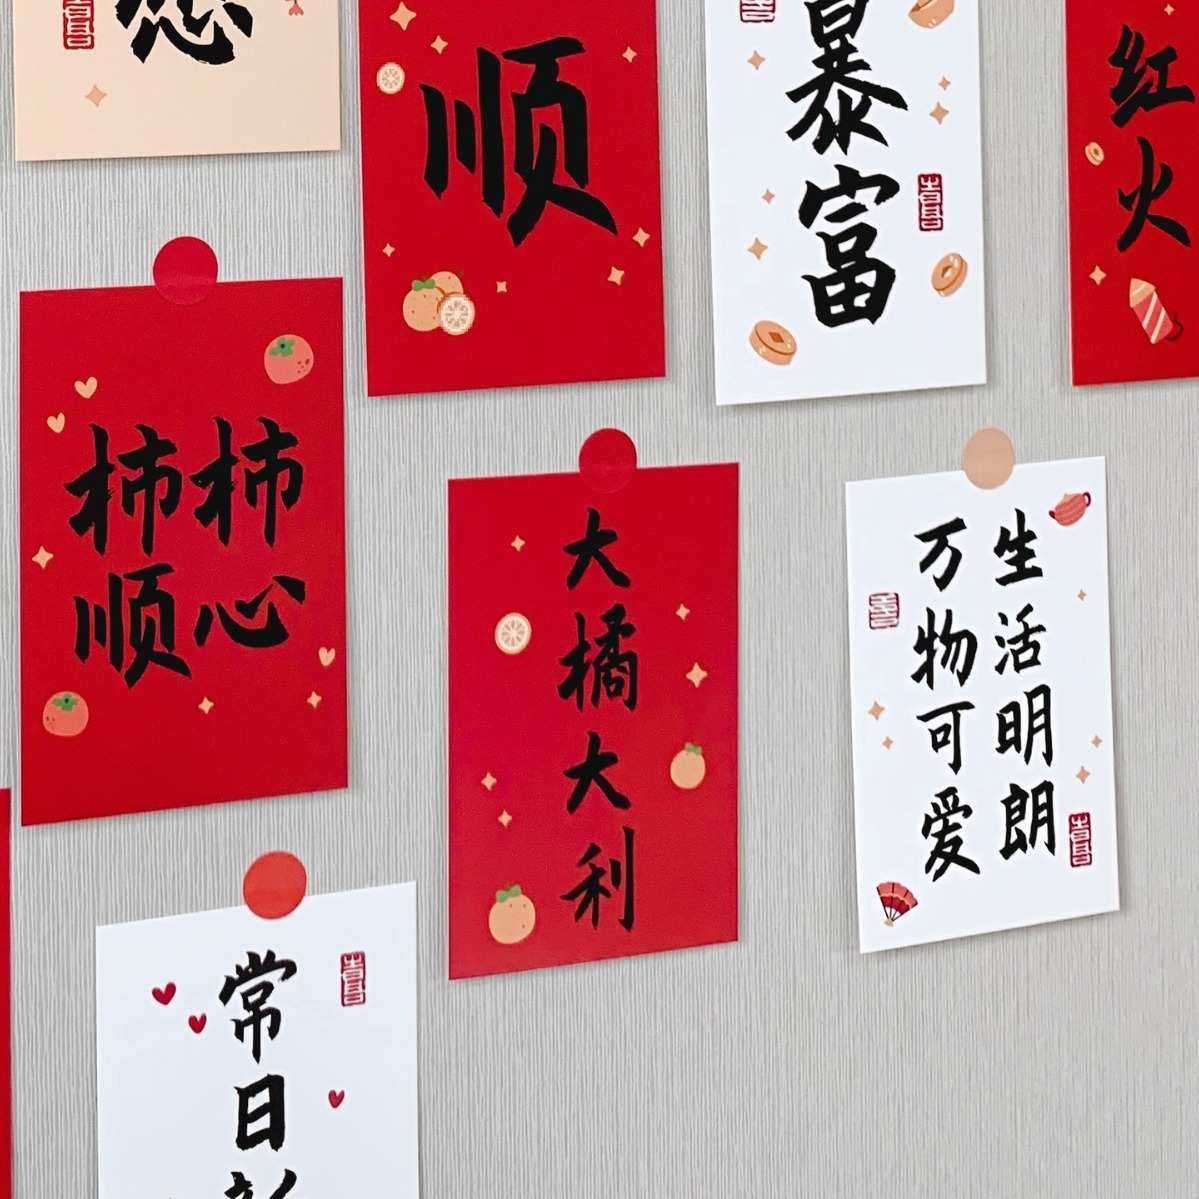 顺
暴富
红火
柿柿
顺心
大橘大利
生活明朗
万物可爱
常日